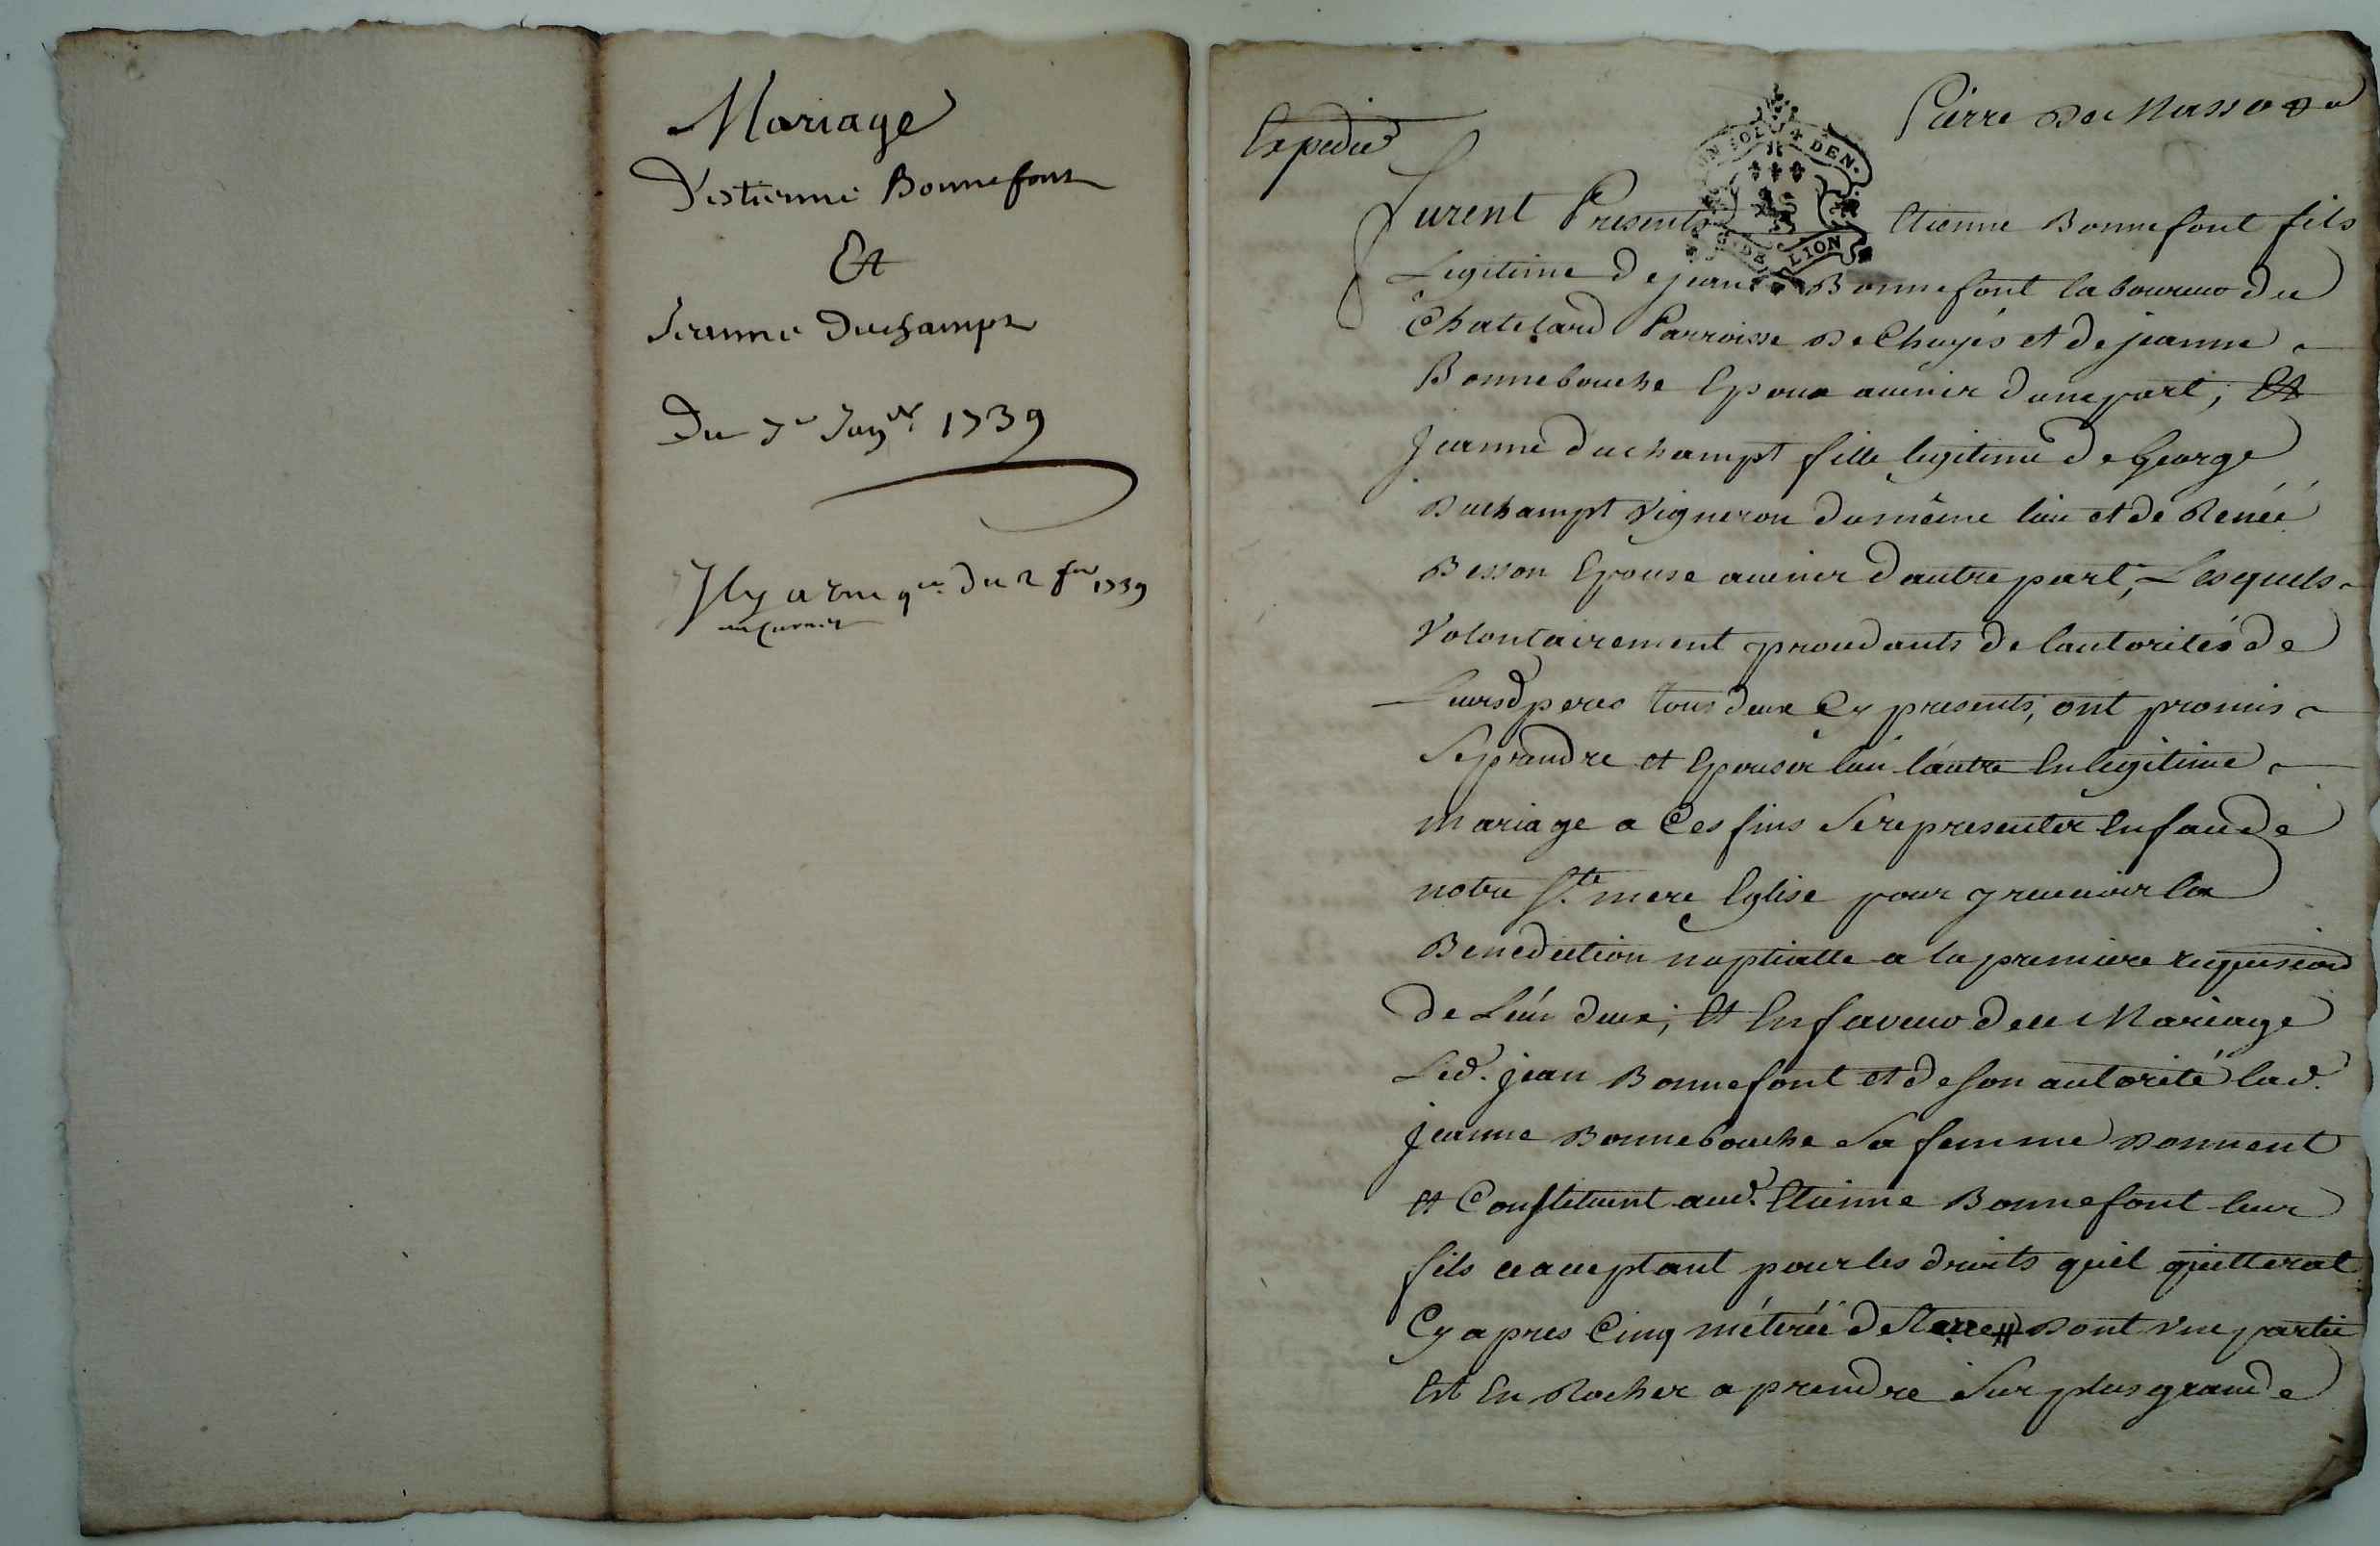 Mariage
D'estienne Bonnefont
Et
Jeanne Duchampt
Du 7e Janvr 1739
Il y a une qce du 2 fer 1739
Expedié
Pierre
UN SOL
DEN.
G. DE LION
Furent Presents Etienne Bonnefont fils
Legitime de jean Bonnefont laboureur du
Chatelard Parroisse de Chuyés et de jeanne
Bonnebouche Epoux avenir d'une part; Et
Jeanne duchampt fille legitime de George
Duchampt Vigneron du même lieu et de Renée
Besson Epouse avenir d'autre part, Lesquels
Volontairement procedants de lautorités de
Leursd peres tous deux Cy presents, ont promis
Se prendre et Epouser lun l'autre En legitime
mariage a Ces fins Se representer En face de
notre Ste mere Eglise pour y recevoir la
Benediction nuptialle a la premiere requision
de Lún deux; Et En faveur de ce Mariage
Led. jean Bonnefont et de son autorité lad.
jeanne Bonnebouche Sa femme donnent
et Constituent aud. Etienne Bonnefont leur
fils acceptant pour les droits quil quitterat
Cy apres Cinq méterée de terre dont vne partie
Est En Rocher a prendre Sur plus grande